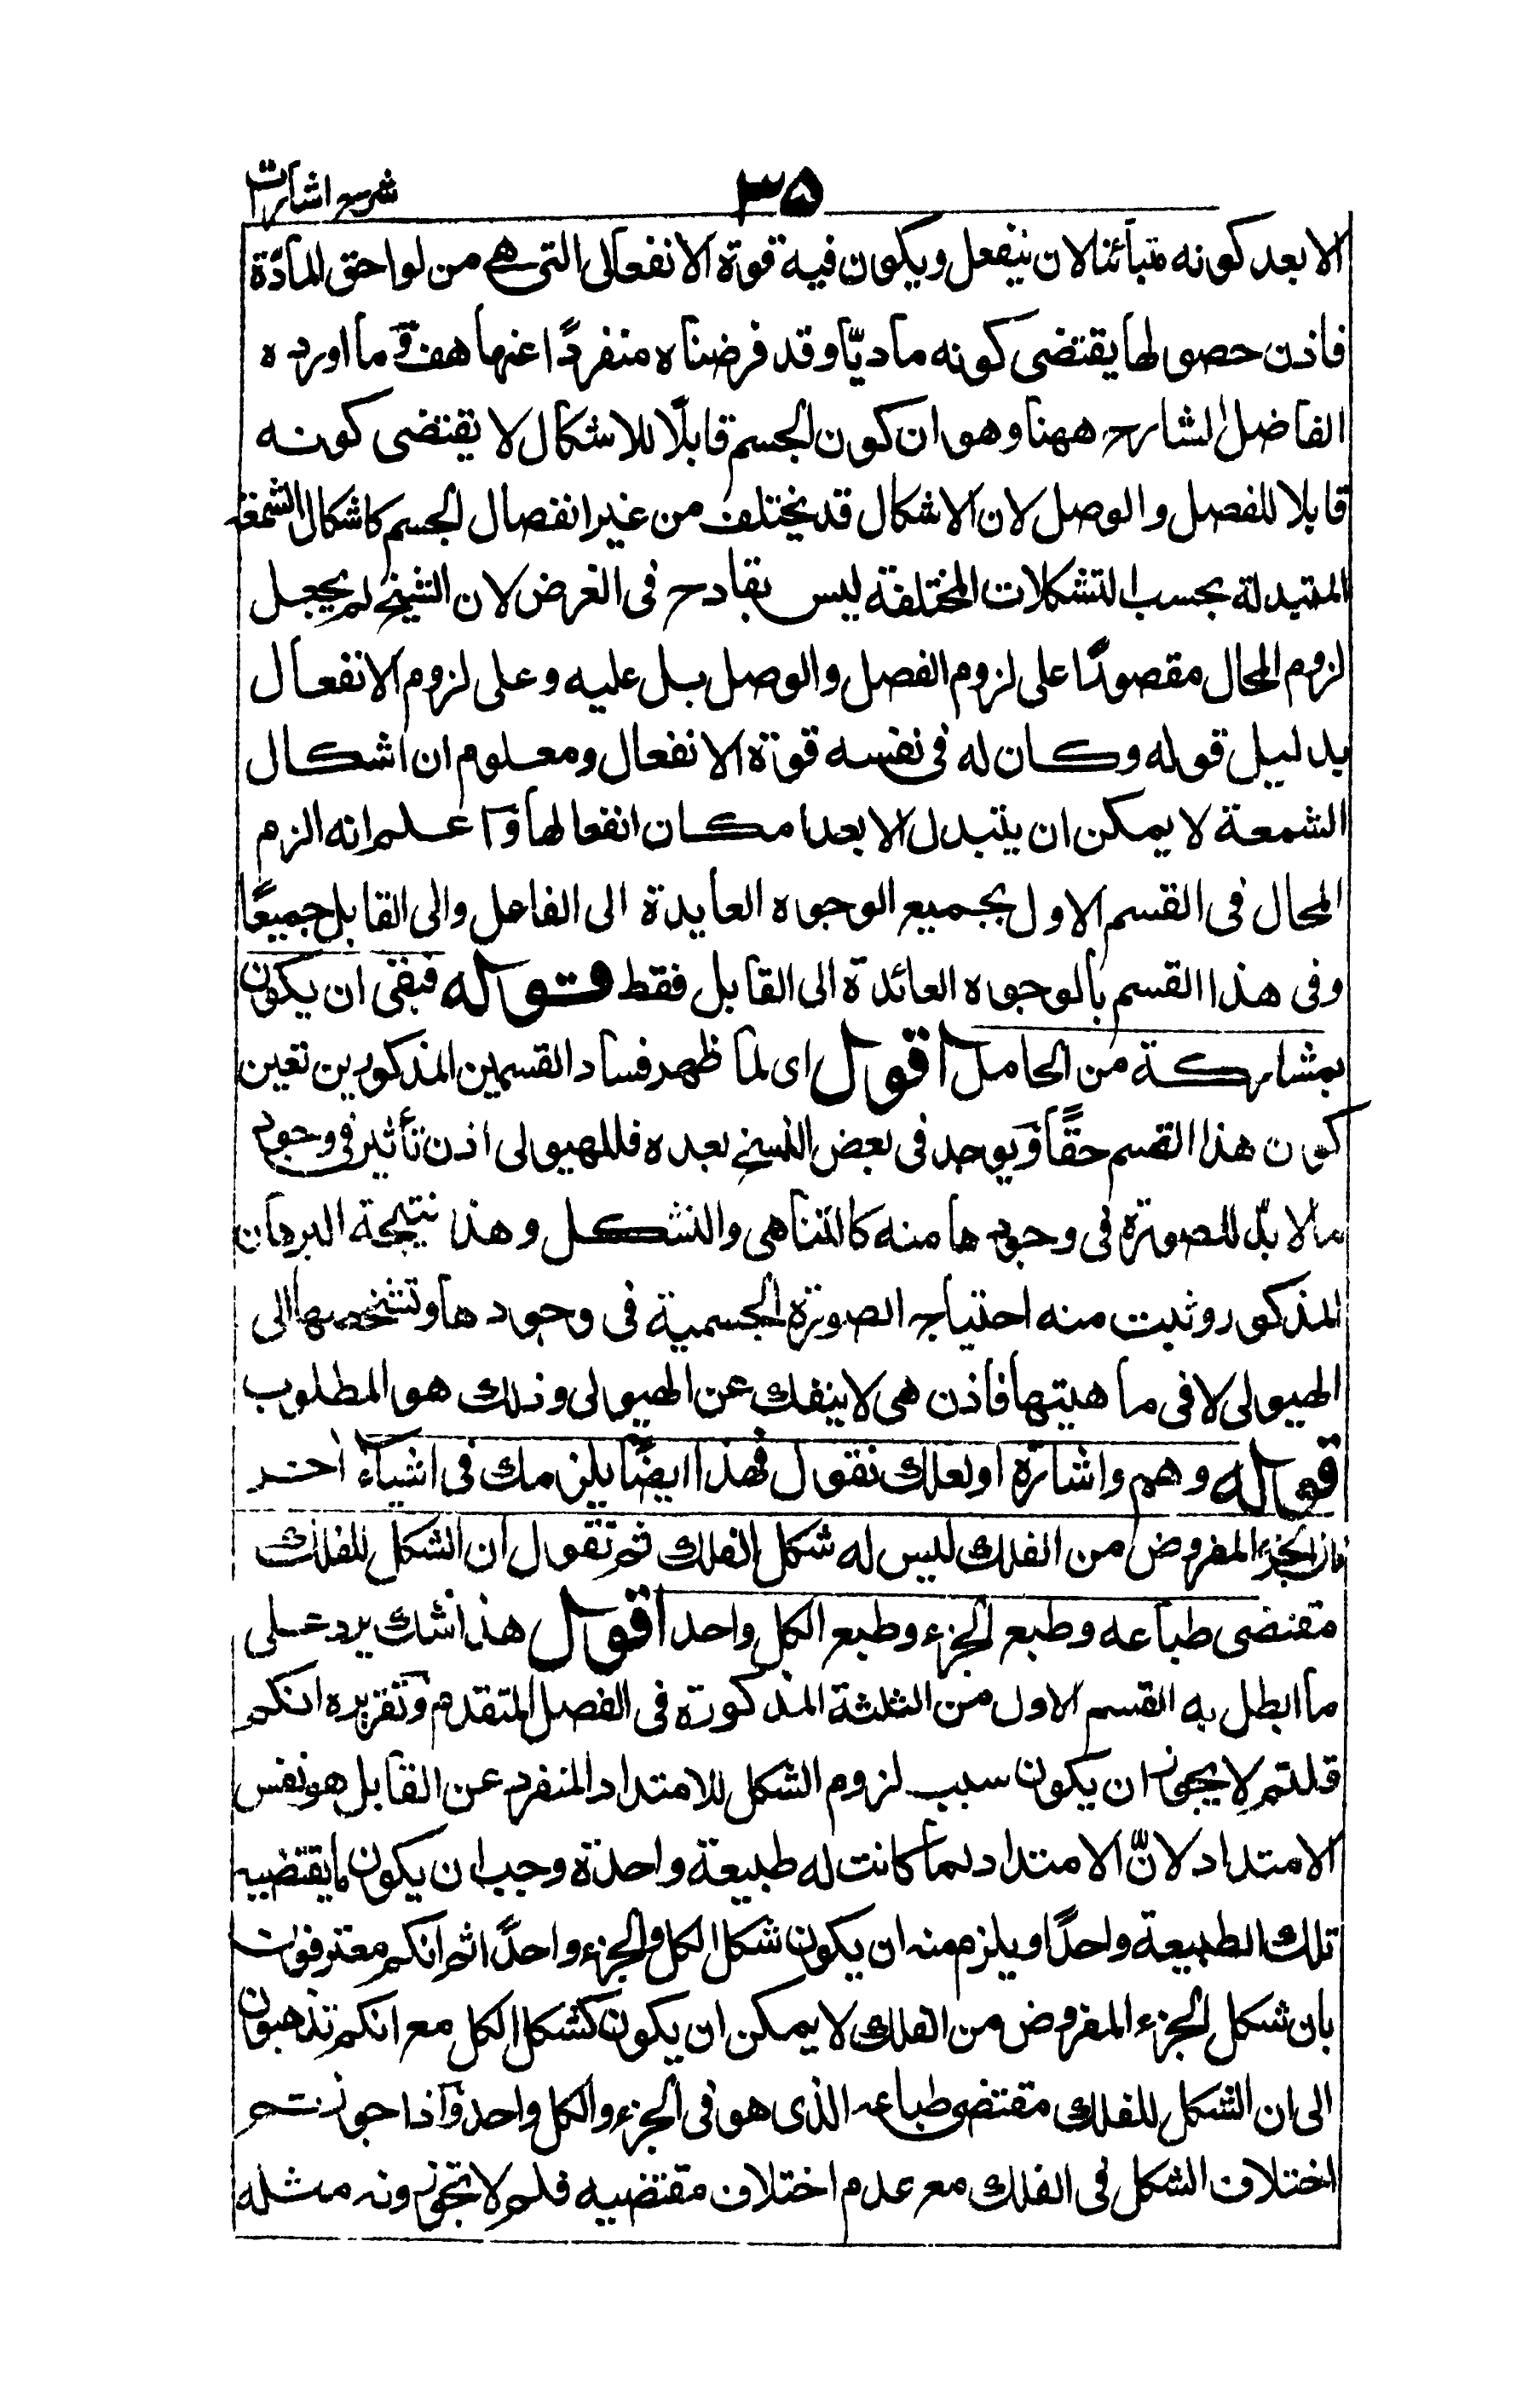 شرح اشارات
۳۵
الا بعد كونه متبائنا لان ينفعل ويكون فيه قوة الانفعالى التى هى من لواحق المادّة
فاذن حصولها يقتضى كونه ماديّا وقد فرضناه منفردًا عنها هف وما اورده
الفاضل الشارح ههنا وهو ان كون الجسم قابلًا للاشكال لا يقتضى كونه
قابلا للفصل والوصل لان الاشكال قد يختلف من غير انفصال الجسم كاشكال الشمعة
المتبدلة بحسب التشكلات المختلفة ليس بقادح فى الغرض لان الشيخ لم يجعل
لزوم المحال مقصودًا على لزوم الفصل والوصل بل عليه وعلى لزوم الانفعال
بدليل قوله وكان له فى نفسه قوة الانفعال ومعلوم ان اشكال
الشمعة لا يمكن ان يتبدل الا بعد امكان انفعالها واعلم انه الزم
المحال فى القسم الاول بجميع الوجوه العايدة الى الفاعل والى القابل جميعًا
وفى هذا القسم بالوجوه العائدة الى القابل فقط قوله فبقى ان يكون
بمشاركة من الحامل اقول اى لما ظهر فساد القسمين المذكورين تعين
كون هذا القسم حقًا ويوجد فى بعض النسخ بعده فللهيولى اذن تأثير فى وجود
ما لا بدّ للصورة فى وجودها منه كالتناهى والتشكل وهذا نتيجة البرهان
المذكور وثبت منه احتياج الصورة الجسمية فى وجودها وتشخصها الى
الهيولى لا فى ماهيتها فاذن هى لا ينفك عن الهيولى وذلك هو المطلوب
قوله وهم واشارة او لعلك نقول فهذا ايضًا يلزمك فى اشياء اخر
فان الجزء المفروض من الفلك ليس له شكل الفلك ثم تقول ان الشكل للفلك
مقتضى طباعه وطبع الجزء وطبع الكل واحد اقول هذا شك يرد على
ما ابطل به القسم الاول من الثلثة المذكورة فى الفصل المتقدم وتقريره انكم
قلتم لا يجوز ان يكون سبب لزوم الشكل للامتداد المنفرد عن القابل هو نفس
الامتداد لانّ الامتداد لما كانت له طبيعة واحدة وجب ان يكون ما يقتضيه
تلك الطبيعة واحدًا ويلزم منه ان يكون شكل الكل والجزء واحدًا ثم انكم معترفون
بان شكل الجزء المفروض من الفلك لا يمكن ان يكون كشكل الكل مع انكم تذهبون
الى ان الشكل للفلك مقتضى طباعه الذى هو فى الجزء والكل واحد واذا جوزتم
اختلاف الشكل فى الفلك مع عدم اختلاف مقتضيه فلم لا تجوزونه مثله